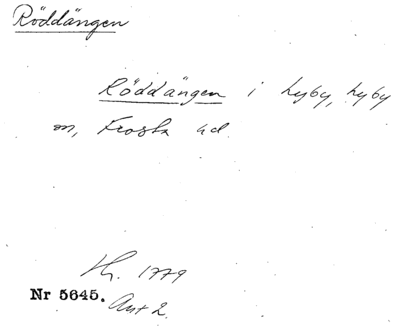 Röddängen
Röddängen i Lyby, Lyby
sn, Frosta hd.
Hr. 1779
Nr 5645.
Akt 2.